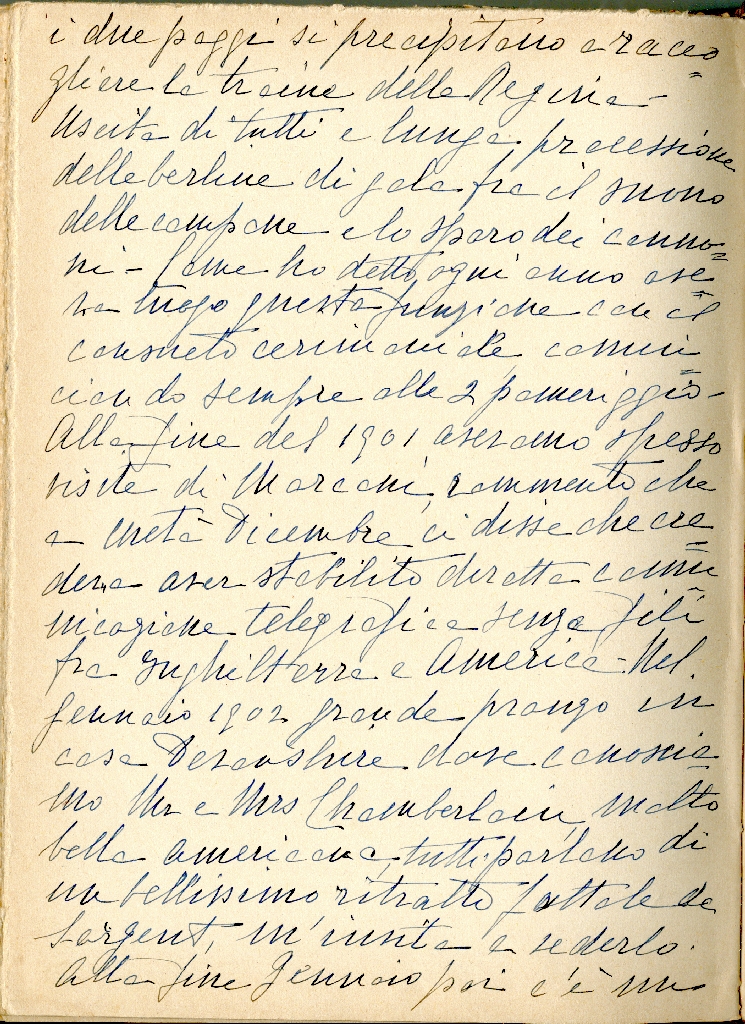 i due paggi si precipitano a racco=
gliere la traine della Regina -
Uscita di tutti e lunga processione
delle berline di gala fra il suono
delle campane e lo sparo dei canno=
ni - Come ho detto ogni anno ave=
va luogo questa funzione con il
consueto cerimoniale, comin
ciando sempre alle 2 pomeriggio -
Alla fine del 1901 avevamo spesso
visite di Marconi, rammento che
a metà Dicembre ci disse che cre=
deva aver stabilito diretta comu=
nicazione telegrafica senza fili
fra Inghilterra e America - Nel
Gennaio 1902 grande pranzo in
casa Devonshire dove conoscia=
mo Mr e Mrs Chamberlain, molto
bella americana, tutti parlano di
un bellissimo ritratto fattole da
Sargent, m'invita a vederlo.
Alla fine Gennaio poi c'è un